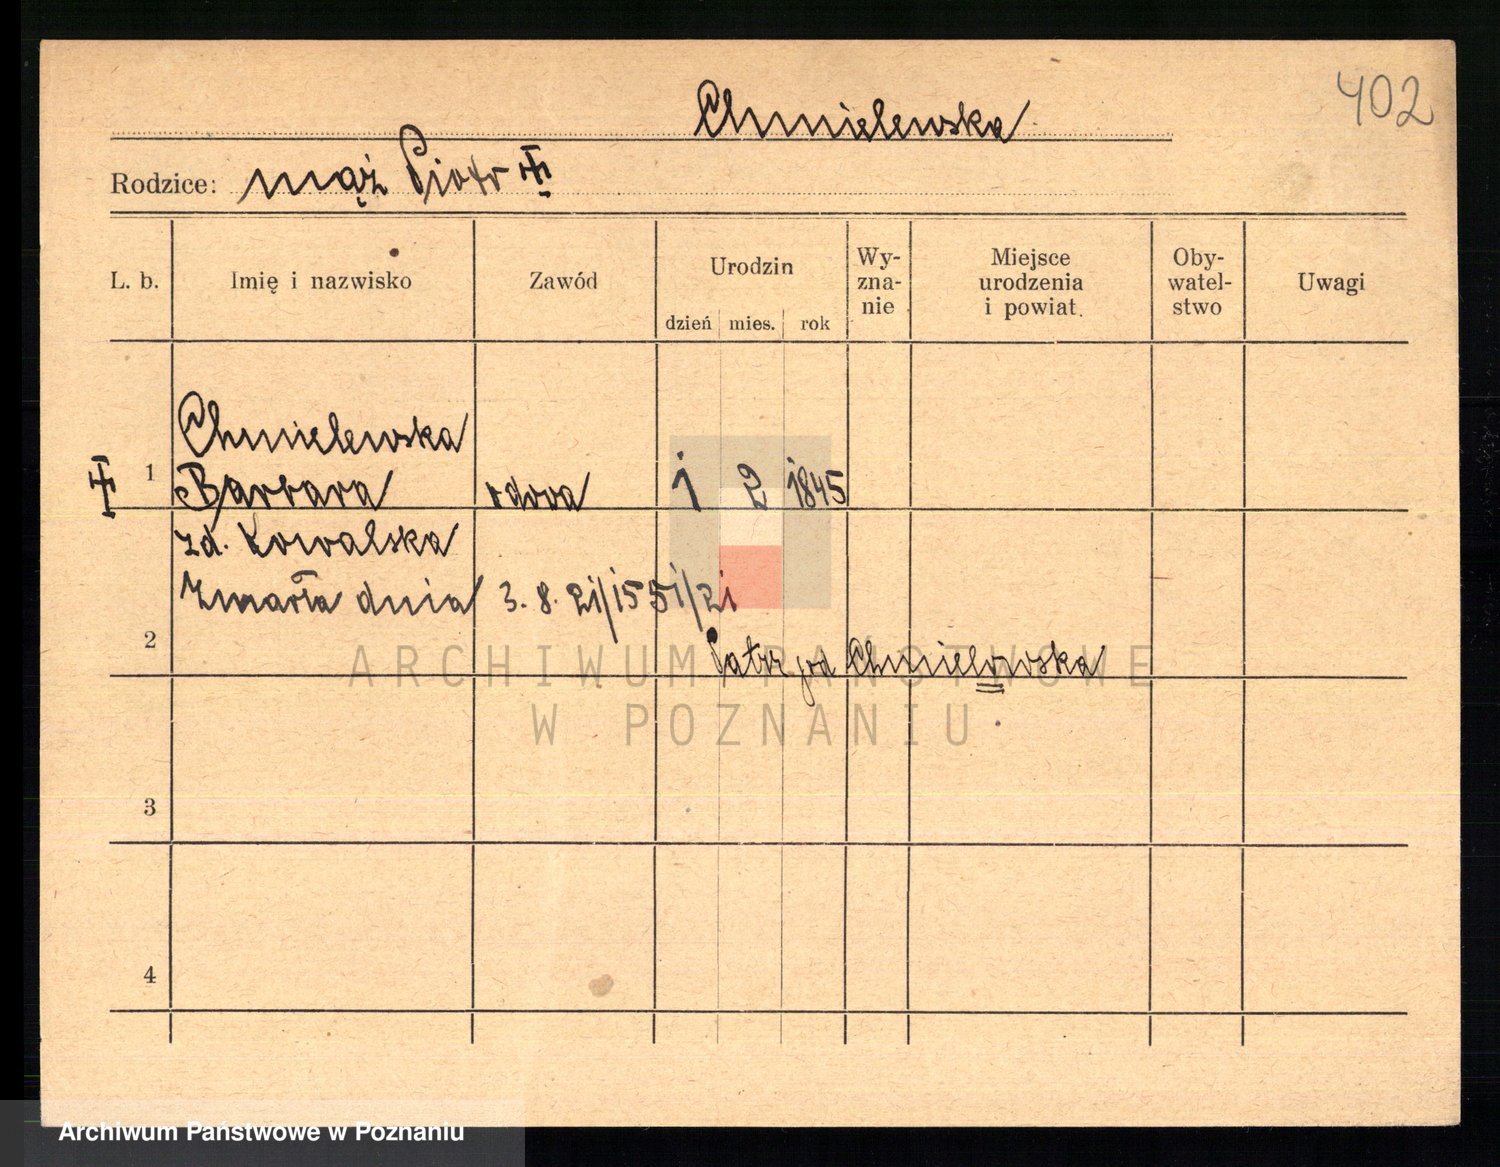 402
Chmielewska
Rodzice: mąż Piotr
L. b. Imię i nazwisko Zawód Urodzin Wy-zna-nie Miejsce urodzenia i powiat. Oby-watel-stwo Uwagi
dzień mies. rok
Chmielewska
1 Barbara wdowa 1 2 1845
zd. Kowalska
Zmarła dnia 3. 8. 21/1551/21
2 Patrz pod Chmielowska
ARCHIWUM PAŃSTWOWE
W POZNANIU
3
4
Archiwum Państwowe w Poznaniu